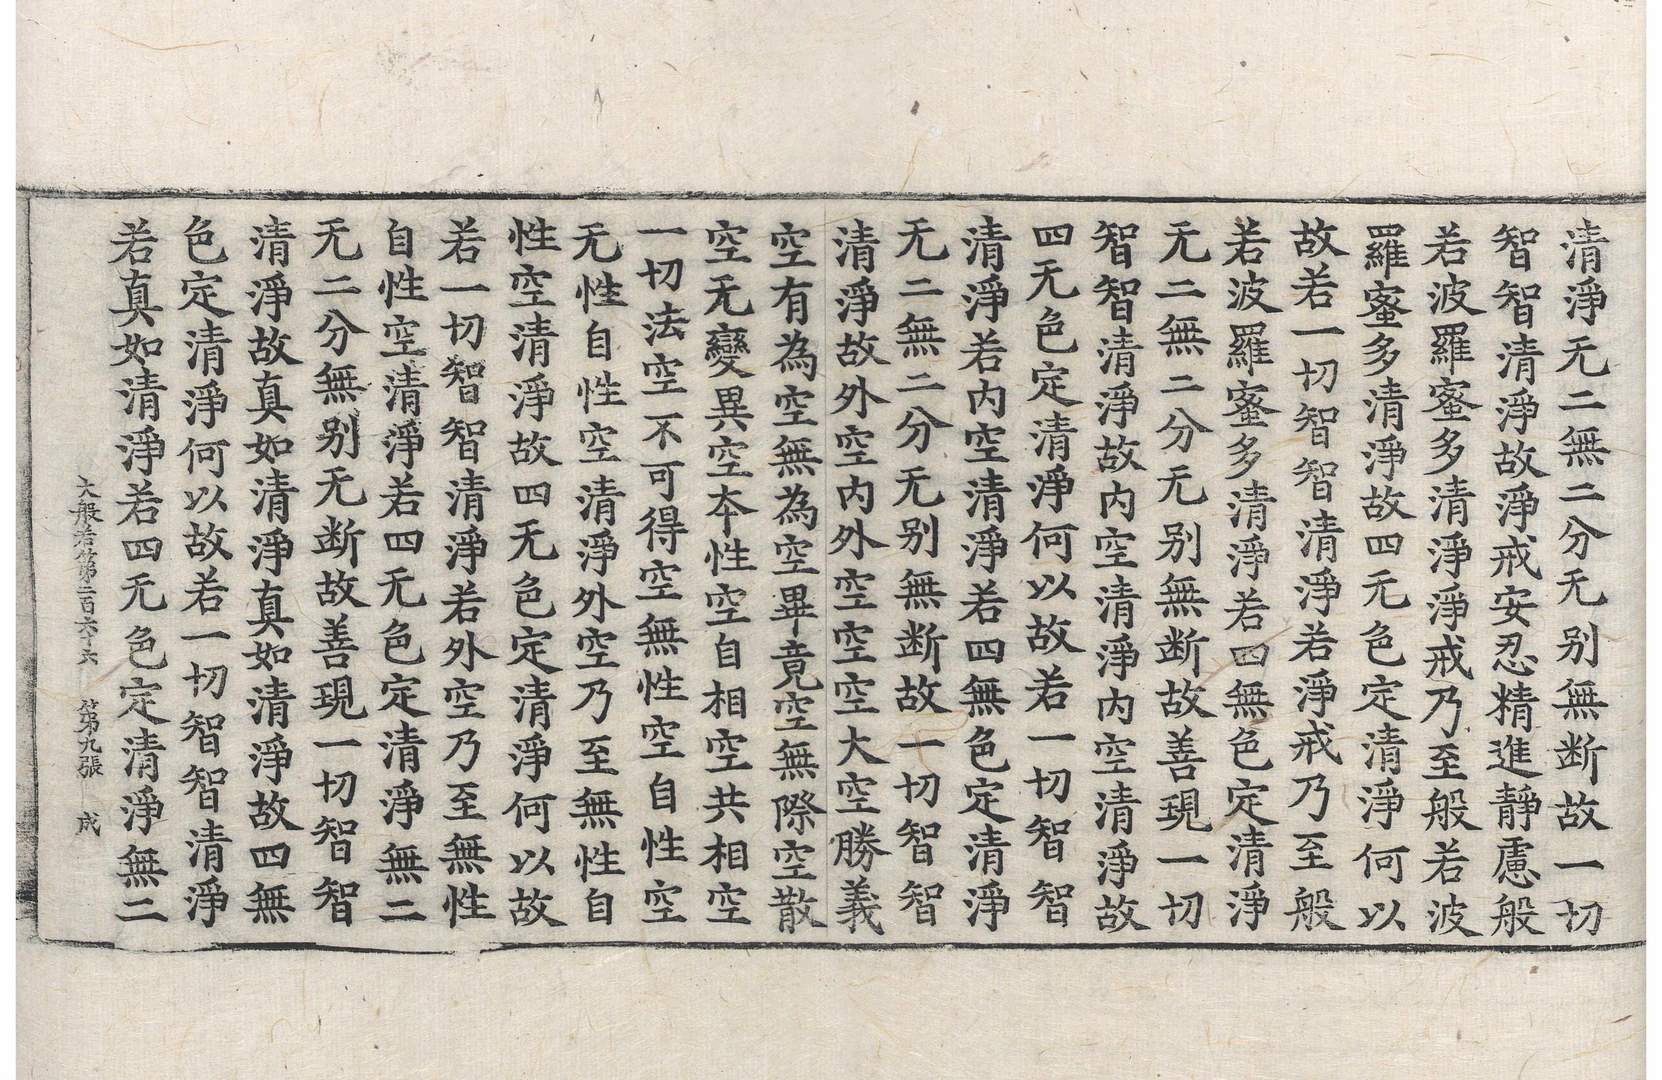 清淨无二無二分无别無断故一切
智智清淨故淨戒安忍精進靜慮般
若波羅蜜多清淨淨戒乃至般若波
羅蜜多清淨故四无色定清淨何以
故若一切智智清淨若淨戒乃至般
若波羅蜜多清淨若四無色定清淨
无二無二分无别無断故善現一切
智智清淨故内空清淨内空清淨故
四无色定清淨何以故若一切智智
清淨若内空清淨若四無色定清淨
无二無二分无别無断故一切智智
清淨故外空内外空空空大空勝義
空有為空無為空畢竟空無際空散
空无變異空本性空自相空共相空
一切法空不可得空無性空自性空
无性自性空清淨外空乃至無性自
性空清淨故四无色定清淨何以故
若一切智智清淨若外空乃至無性
自性空清淨若四无色定清淨無二
无二分無别无断故善現一切智智
清淨故真如清淨真如清淨故四無
色定清淨何以故若一切智智清淨
若真如清淨若四无色定清淨無二
大般若第二百六十六 第九張 成